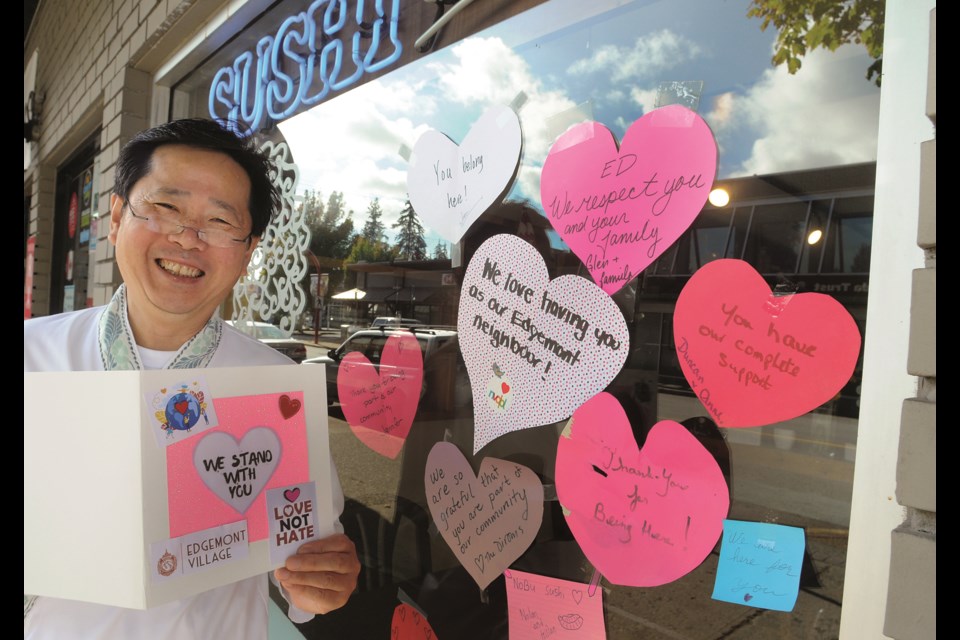 SUSHI
You belong
here!
ED
We respect you
and your
Family
Glen +
family
We love having you
as our Edgemont
neighbour!
You have
our complete
support
community
We
are so
grateful that
you are part of
our community
The Dirom's
Thank-You
for
Being Here!
We are
here for
you
NoBu sushi
Nolan
and
WE STAND
WITH
YOU
LOVE
NOT
HATE
EDGEMONT
VILLAGE
Trust